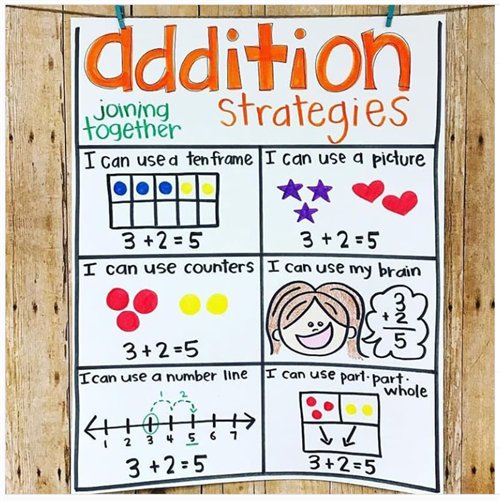 addition
joining
together
strategies
I can use a ten frame
3+2=5
I can use a picture
3+2=5
I can use counters
3+2=5
I can use my brain
3
+2
5
I can use a number line
1 2
1 2 3 4 5 6 7
3+2=5
I can use part-part-
whole
3+2=5